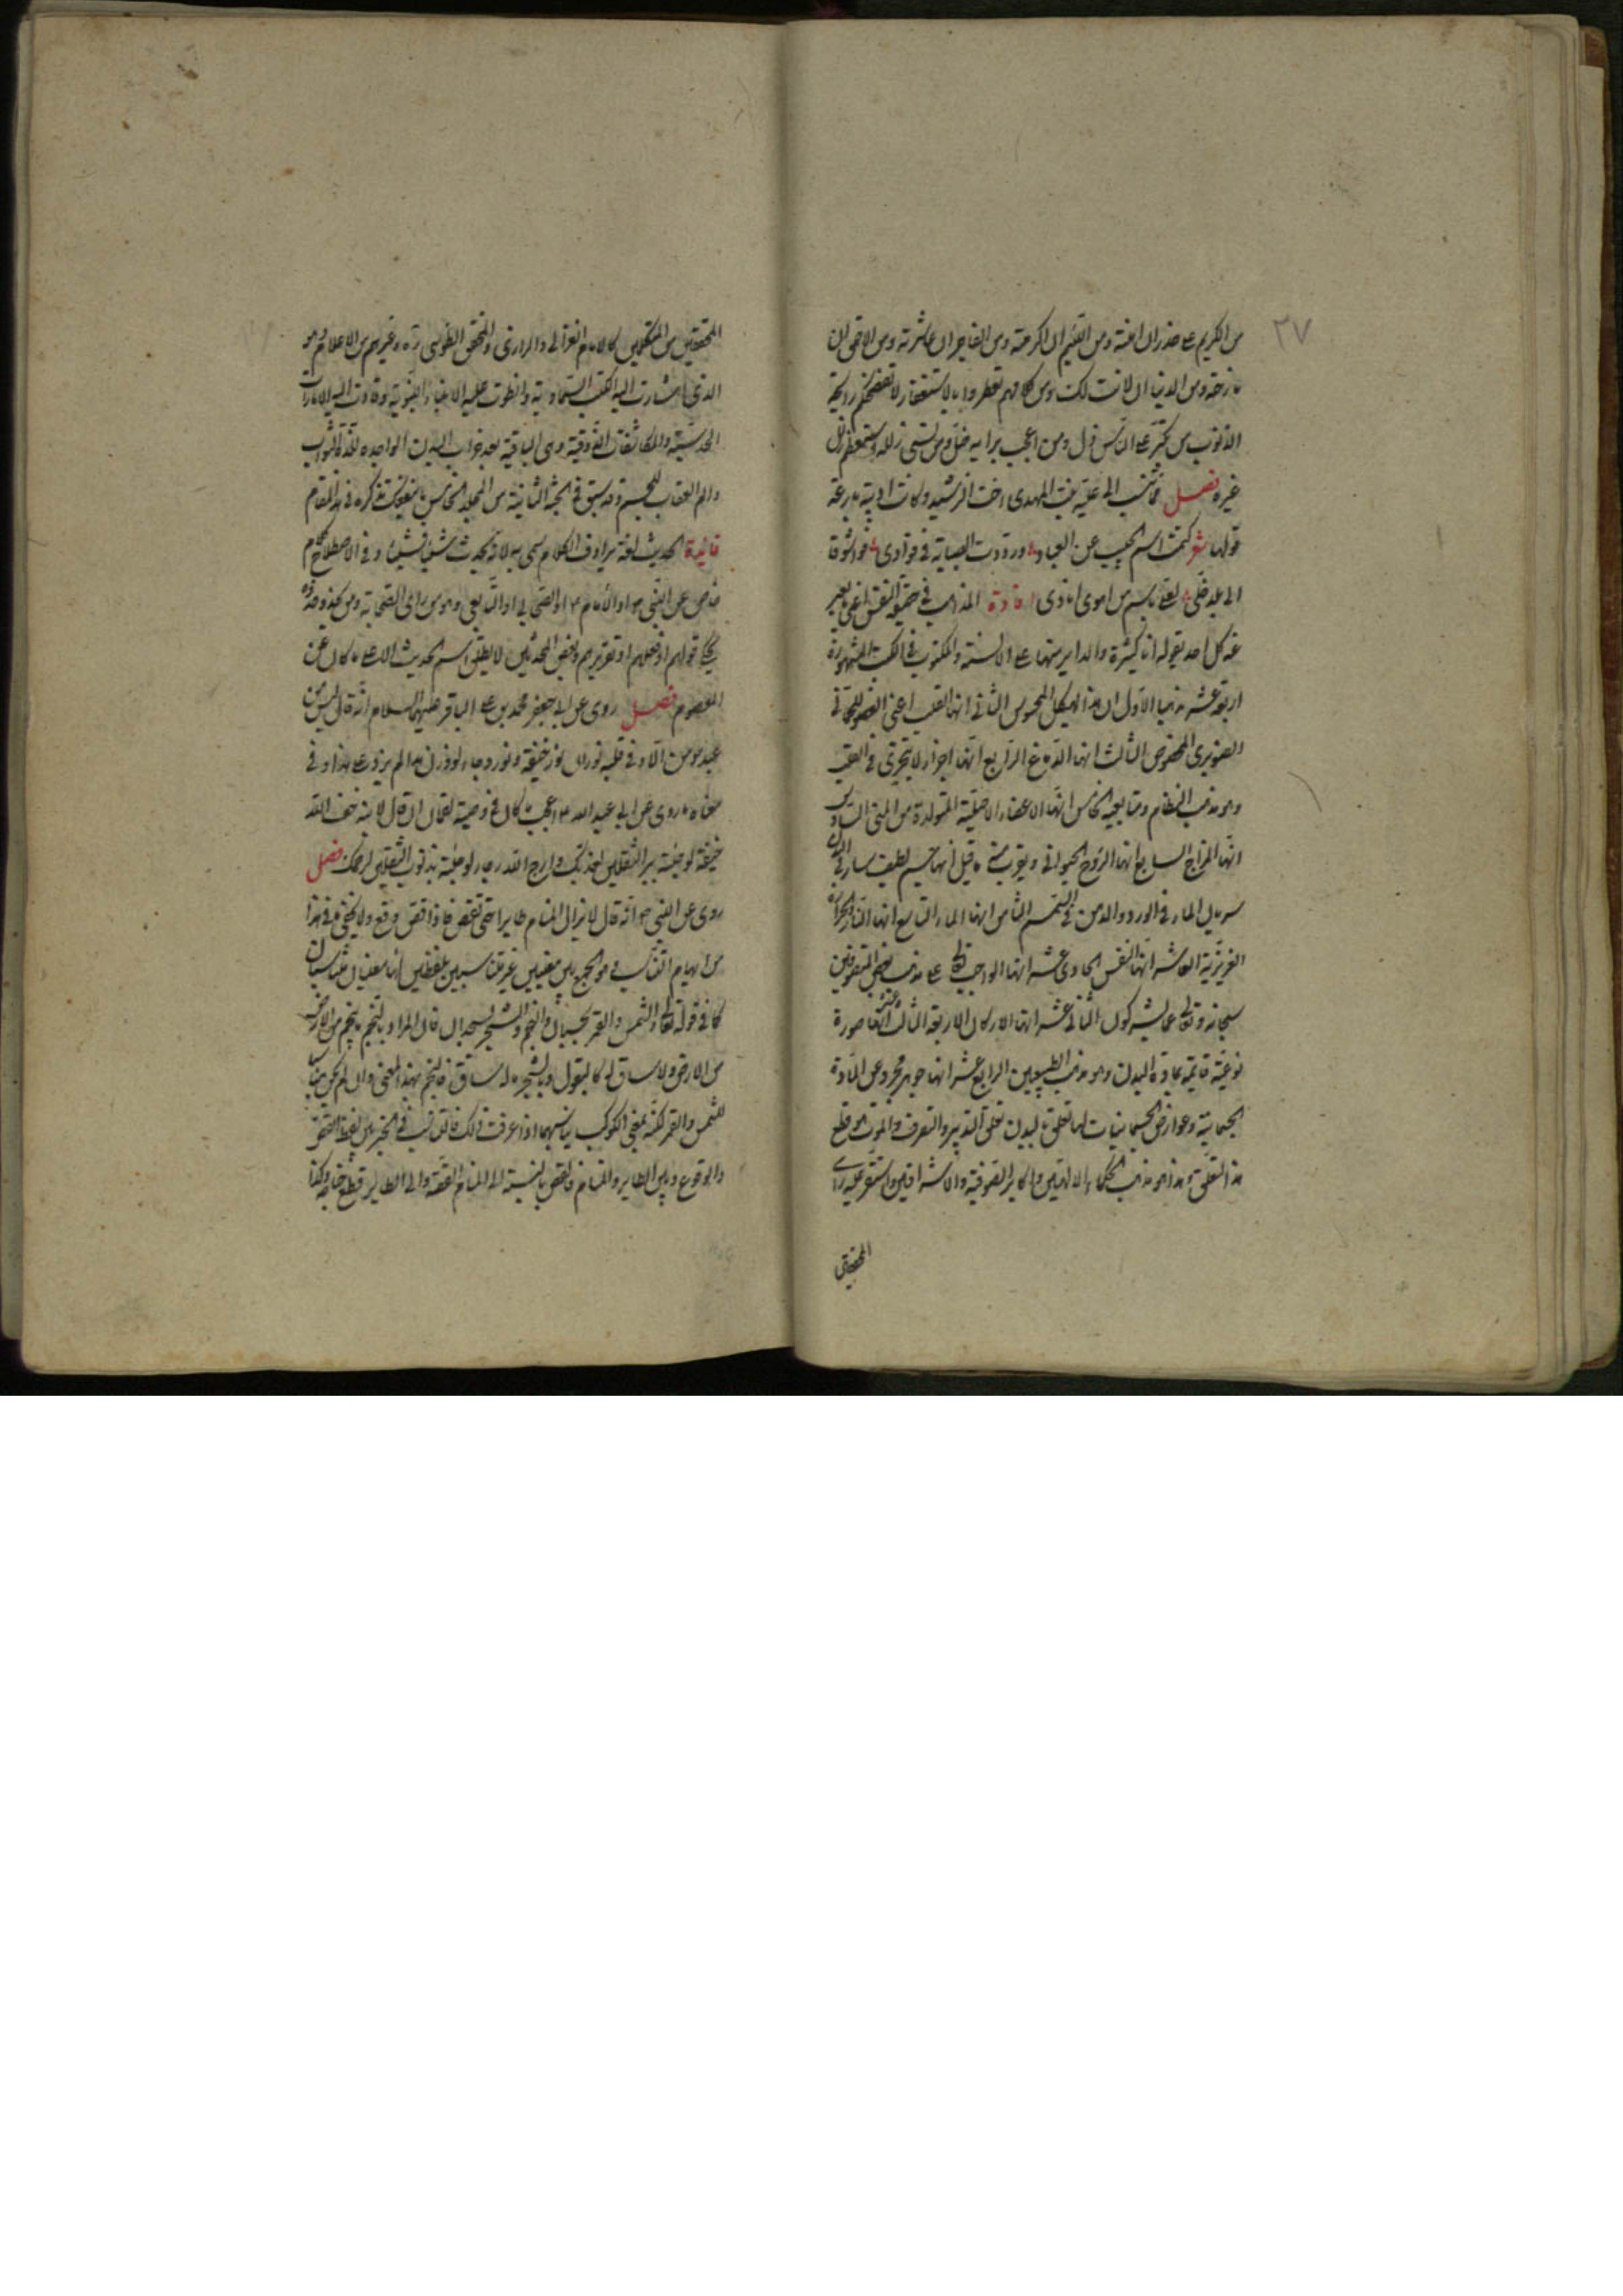 ٢٧
من الكريم على حذر ان اهنته ومن اللئيم ان اكرمته ومن الفاجر ان عاشرته ومن الاحمق ان
مازحته ومن الدنيا ان لانت لك ومن كلامهم تعطروا بالاستغفار لا تفضحكم رايحة
الذنوب من تكبر على الناس ذل ومن اعجب برايه ضل ومن نسى زلله استعظم زلل
غيره فصل مما ينسب الى علية بنت المهدى اخت الرشيد وكانت اديبة بارعة
قولها شعر كتمت اسم الحبيب عن العباد ورددت الصبابة في فوادى فواشوقا
الى بلد خلى لعلى باسم من اهوى انادى افادة المذاهب في حقيقة النفس اعنى ما يعبر
عنه كل احد بقوله انا كثيرة والداير منها على الالسنة والمكتوب في الكتب المشهورة
اربعة عشر مذهبا الاول ان هذا الهيكل المحسوس الثانى انها القلب اعنى العضو اللحمانى
الصنوبرى المخصوص الثالث انها الدماغ الرابع انها اجزاء لا تتجزى في القلب
وهو مذهب النظام ومتابعيه الخامس انها الاعضاء الاصلية المتولدة من المنى السادس
انها المزاج السابع انها الروح الحيوانى ويقرب منه ما قيل انها جسم لطيف سار في البدن
سريان الماء في الورد والدهن في السمسم الثامن انها الماء التاسع انها النار والحرارة
الغريزية العاشر انها النفس الحادى عشر انها الواجب تعالى على مذهب بعض المتصوفين
سبحانه وتعالى عما يشركون الثانى عشر انها الاركان الاربعة الثالث عشر انها صورة
نوعية قايمة بمادة البدن وهو مذهب الطبيعيين الرابع عشر انها جوهر مجرد عن المادة
الجسمانية وعوارض الجسمانيات لها تعلق بالبدن تعلق التدبير والتصرف والموت هو قطع
هذا التعلق هذا هو مذهب الحكماء الالهيين واكابر الصوفية والاشراقيين واستقر عليه راى
المحققين
المحققين من المتكلمين كالامام الغزالى والرازى والمحقق الطوسى ره وغيرهم من الاعلام وهو
الذى اشارت اليه الكتب السماوية وانطوت عليه الانباء النبوية وقادت اليه الامارات
الحدسية والمكاشفات الذوقية وهى الباقية بعد خراب البدن الواجده للذة الثواب
والم العقاب للجسم وقد سبق في الجثة الثانية من المجلد الخامس ما ينفعك تذكره في هذا المقام
فائدة الحديث لغة يرادف الكلام سمى به لانه يحدث شيئا فشيئا وفي الاصطلاح كلام
خاص عن النبى ص او الامام ع او الصحابى او التابعى وهو من راى الصحابة ومن يحذو حذوه
يحكى قولهم او فعلهم او تقريرهم وبعض المحدثين لا يطلق اسم الحديث الا على ما كان عن
المعصوم فصل روى عن ابى جعفر محمد بن على الباقر عليهما السلام انه قال ليس من
عبد مومن الا وفي قلبه نوران نور خيفة ونور رجاء لو وزن هذا لم يزد على هذا وفي
معناه ما روى عن ابى عبد الله ع اعجب ما كان في وصية لقمان ان قال لابنه خف الله
خيفة لو جئته ببر الثقلين لعذبك وارج الله رجاء لو جئته بذنوب الثقلين لرحمك فصل
روى عن النبى ص انه قال لا يزال المنام طايرا حتى تقص فاذا قص وقع ولا يخفى ما في هذا
من ايهام التناسب وهو الجمع بين معنيين غير متناسبين بلفظين لهما معنيان متناسبان
كما في قوله تعالى والشمس والقمر بحسبان والنجم والشجر يسجدان فان المراد بالنجم ما ينجم من الارض
من الارض ولا ساق له كالبقول وبالشجر ما له ساق فالنجم بهذا المعنى وان لم يكن مناسبا
للشمس والقمر لكنه بمعنى الكوكب يناسبهما اذا عرفت ذلك فالتناسب في الخبر بين لفظ القص
والوقوع وبين الطاير والمنام فالقص بالنسبة الى المنام القصة والى الطاير قطع جناحه وكذا